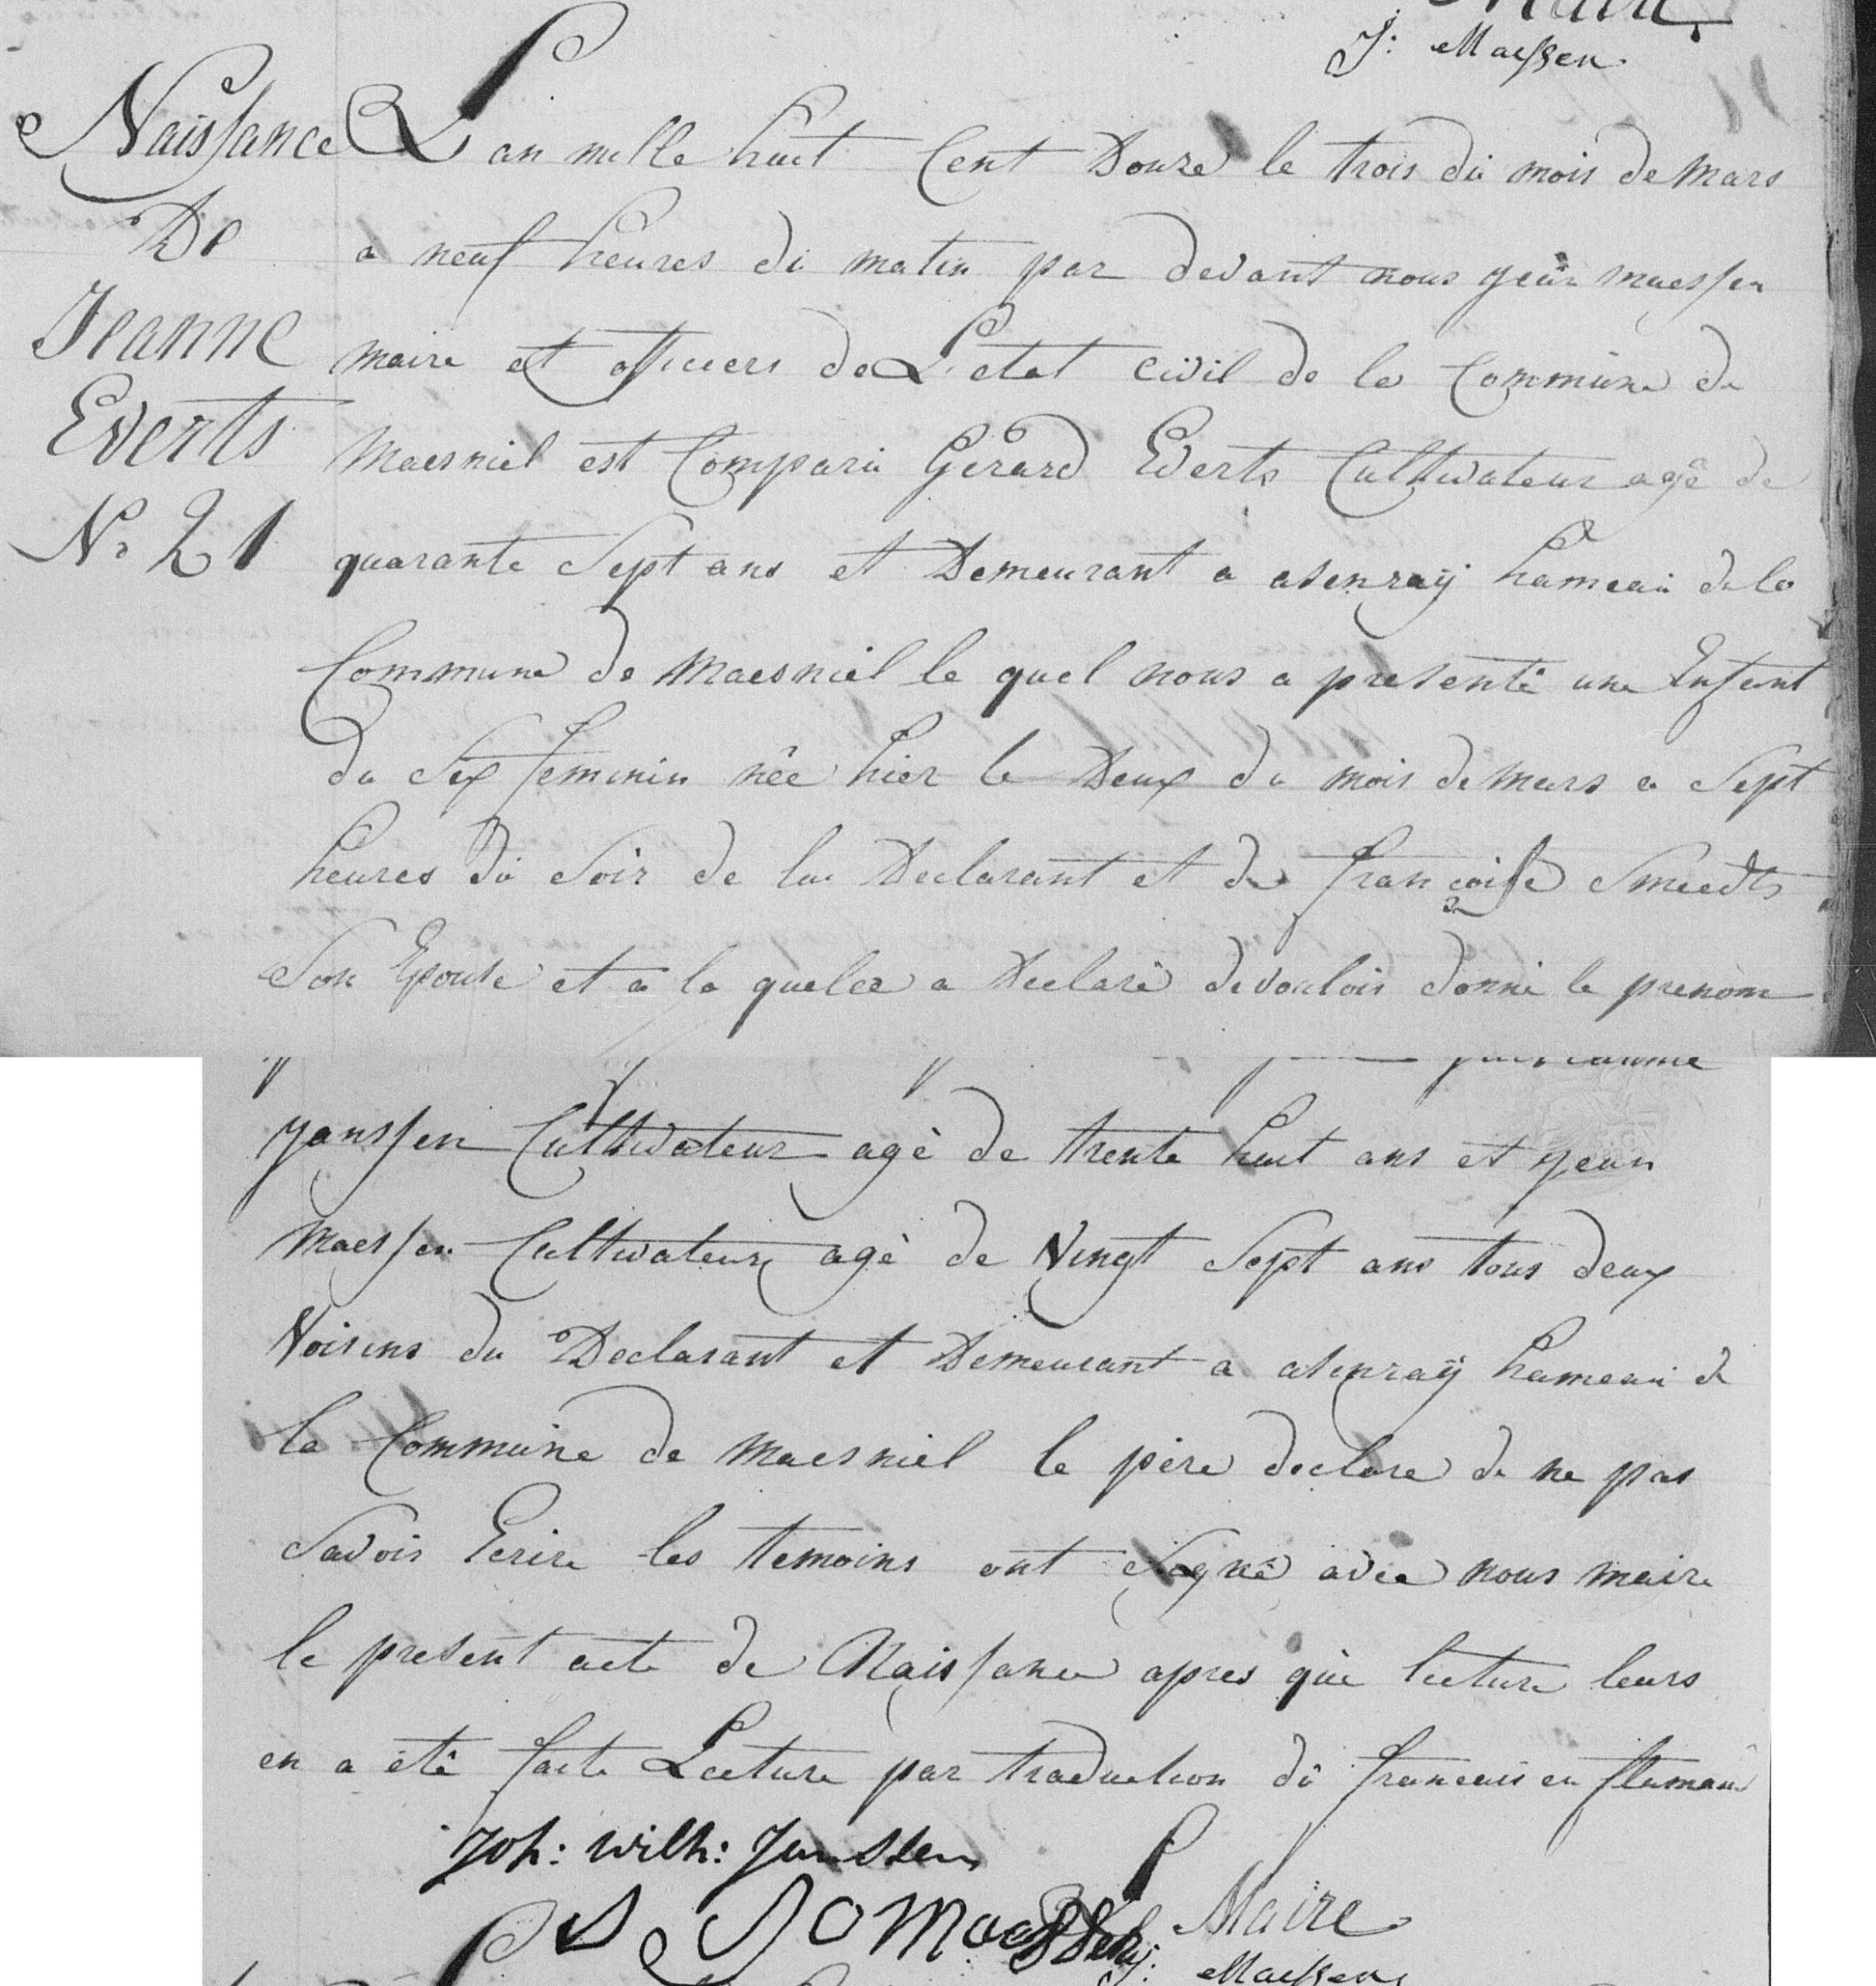 J: Maessen
Naissance
De
Jeanne
Everts
No 21
L'an mille huit Cent Douze le trois du mois de mars
a neuf heures du matin par devant nous jean maessen
maire et officiers de L'etat civil de la Commune de
Maesniel est Comparu Gerard Everts Cultivateur agé de
quarante Sept ans et Demeurant a asenraÿ hameau de la
Commune de Maesniel le quel nous a presenté une Enfant
du Sex feminin née hier le Deux du mois de mars a Sept
heures du Soir de lui Declarant et de françoise Smeedts
Son Epouse et a la quelle a Declaré de voulois donné le prenom
janssen Cultivateur agé de trente huit ans et jean
Maessen Cultivateur agé de Vingt Sept ans tous deux
Voisins du Declarant et Demeurant a asenraÿ hameau de
la Commune de Maesniel le père declare de ne pas
Savois Ecrire les temoins ont Signé avec nous maire
le present acte de Naissance apres que lecture leurs
en a eté faite Lecture par traduction du francais en flamand
Joh: Wilh: Janssen
Maessen
Maire
J: Maessen